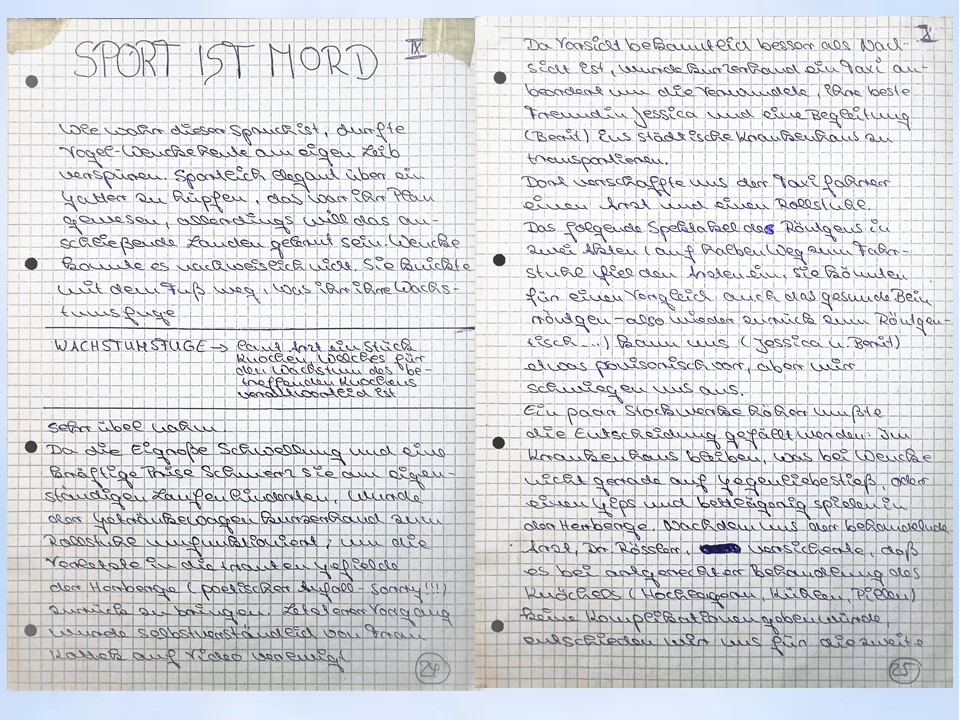 SPORT IST MORD
IX
Wie wahr dieser Spruch ist, durfte
Vogel-Wencke heute am eigen Leib
verspüren. Sportlich elegant über ein
Gatter zu hüpfen, das war ihr Plan
gewesen, allerdings will das an-
schließende Landen gelernt sein. Wencke
konnte es nachweislich nicht. Sie knickte
mit dem Fuß weg, was ihr ihre Wachs-
tumsfuge
WACHSTUMSFUGE → laut Arzt ein Stück
Knochen, welches für
den Wachstum des be-
treffenden Knochens
verantwortlich ist
sehr übel nahm.
Da die Eigroße Schwellung und eine
kräftige Prise Schmerz sie am eigen-
ständigen Laufen hinderten, wurde
der Getränkewagen kurzerhand zum
Rollstuhl umfunktioniert, um die
Verletzte in die trauten Gefielde
der Herberge (poetischer Anfall - sorry!!!)
zurück zu bringen. Letzterer Vorgang
wurde selbstverständlich von Frau
auf Video verewigt
24
X
Da Vorsicht bekanntlich besser als Nach-
sicht ist, wurde kurzerhand ein Taxi an-
beordert um die Verwundete, ihre beste
Freundin Jessica und eine Begleitung
(Berit) ins städtische Krankenhaus zu
transportieren.
Dort verschaffte uns der Taxifahrer
einen Arzt und einen Rollstuhl.
Das folgende Spektakel des Röntgens in
zwei Akten (auf halben Weg zum Fahr-
stuhl fiel den Ärzten ein, sie könnten
für einen Vergleich auch das gesunde Bein
röntgen - also wieder zurück zum Röntgen-
tisch...) kam uns (Jessica u. Berit)
etwas provisorisch vor, aber wir
schwiegen uns aus.
Ein paar Stockwerke höher mußte
die Entscheidung gefällt werden: Im
Krankenhaus bleiben, was bei Wencke
nicht gerade auf Gegenliebe stieß, oder
einen Gips und bettlägerig spielen in
der Herberge. Nachdem uns der behandelnde
Arzt, Dr. Rössler, versicherte, daß
es bei artgerechter Behandlung des
Knöchels (Hochlagern, Kühlen, Pillen)
keine Komplikationen geben würde,
entschieden wir uns für die zweite
25